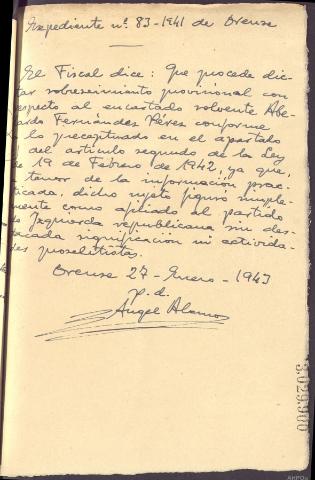 Expediente nº. 83-1941 de Orense
El Fiscal dice: Que procede dic-
tar sobreseimiento provisional con
respecto al encartado solvente Abe-
lardo Fernández Pérez conforme
a lo preceptuado en el apartado
del artículo segundo de la Ley
de 19 de Febrero de 1942, ya que,
a tenor de la información prac-
ticada, dicho sujeto figuró simple-
mente como afiliado al partido
de Izquierda republicana sin des-
tacada significación ni activida-
des proselitistas.
Orense 27-Enero-1943
p. d.
Angel Alamo
3.029.900
AHPOu